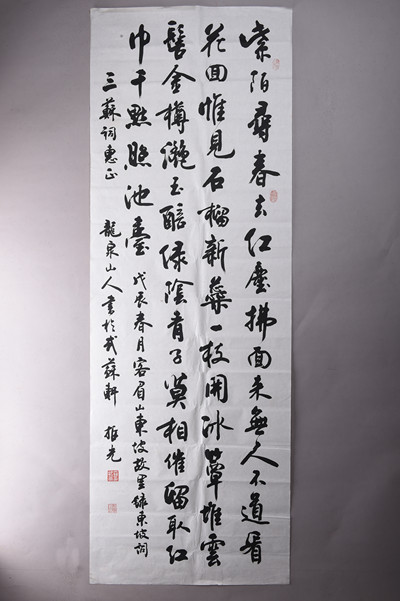 紫陌尋春去红塵拂面来無人不道看
花回惟見石榴新蘂一枝開冰簟堆雲
髻金樽灔玉醅绿陰青子莫相催留取红
巾千點照池臺 戊辰春月客眉山東坡故里録東坡詞
三蘇詞惠正 龍泉山人書於式蘇軒 振光